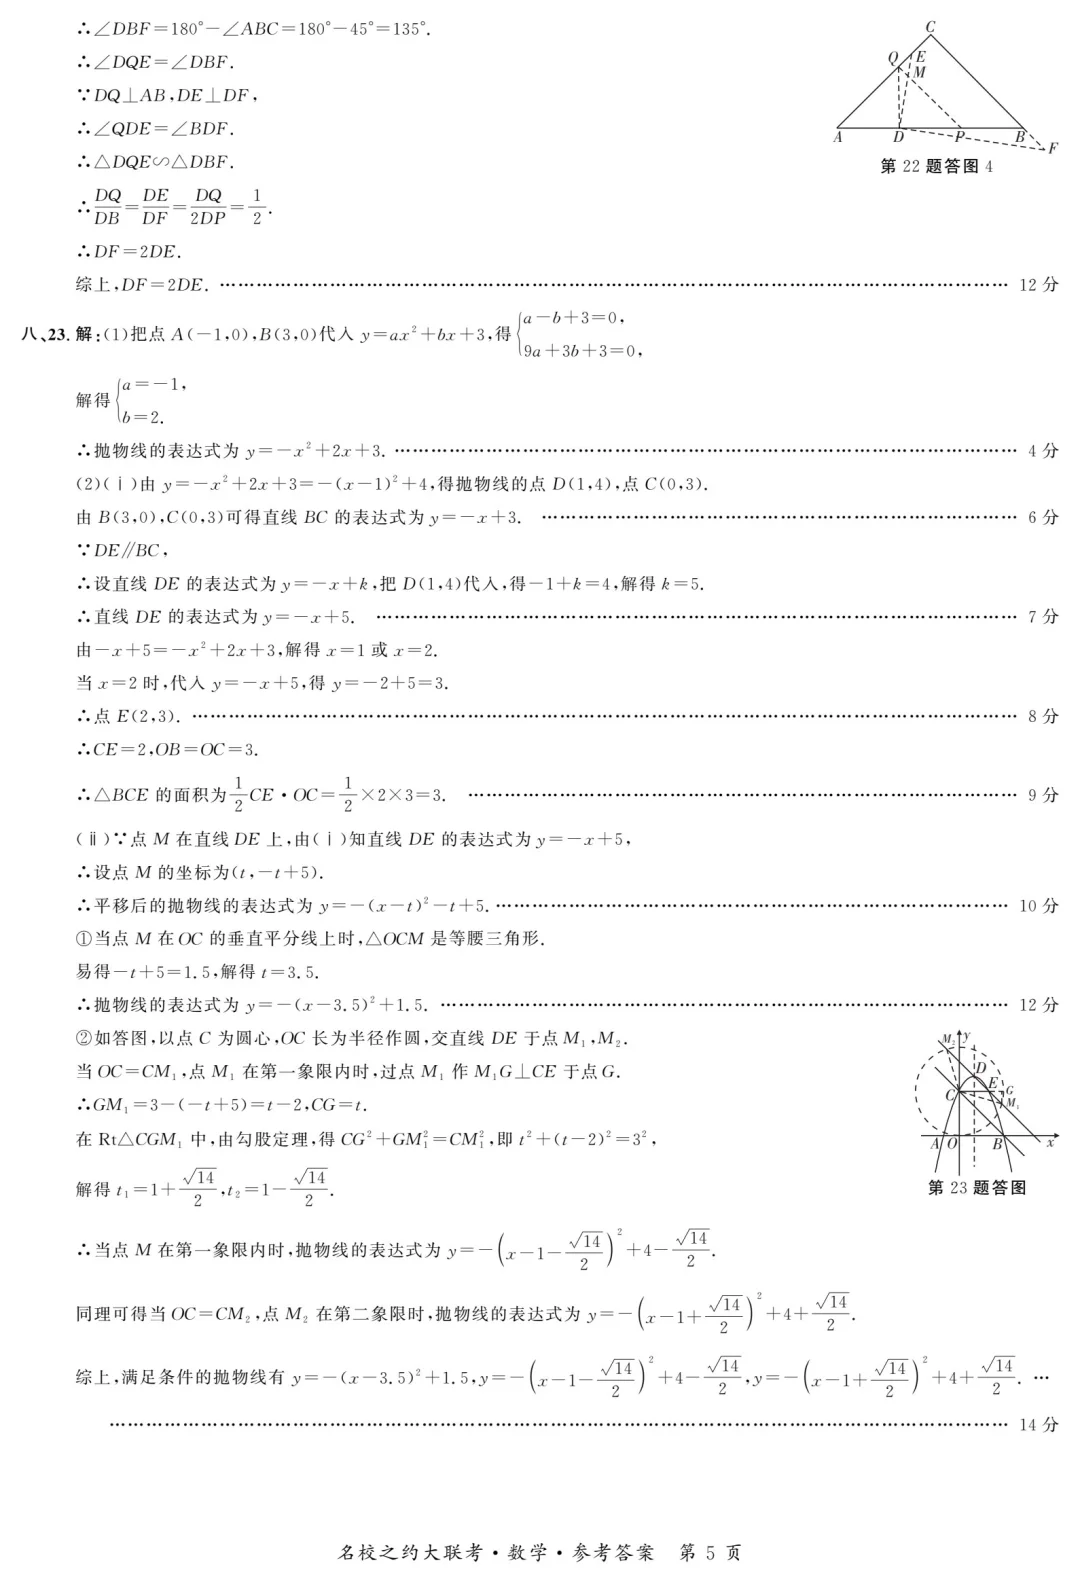 ∴∠DBF=180°-∠ABC=180°-45°=135°.
∴∠DQE=∠DBF.
∵DQ⊥AB,DE⊥DF,
∴∠QDE=∠BDF.
∴△DQE∽△DBF.
∴DQ/DB=DE/DF=DQ/2DP=1/2.
∴DF=2DE.
综上,DF=2DE. …… 12 分
C
Q E
M
A D P B
F
第 22 题答图 4
八、23. 解:(1)把点 A(-1,0),B(3,0)代入 y=ax²+bx+3,得{a-b+3=0,
9a+3b+3=0,
解得{a=-1,
b=2.
∴抛物线的表达式为 y=-x²+2x+3. …… 4 分
(2)(ⅰ)由 y=-x²+2x+3=-(x-1)²+4,得抛物线的点 D(1,4),点 C(0,3).
由 B(3,0),C(0,3)可得直线 BC 的表达式为 y=-x+3. …… 6 分
∵DE∥BC,
∴设直线 DE 的表达式为 y=-x+k,把 D(1,4)代入,得-1+k=4,解得 k=5.
∴直线 DE 的表达式为 y=-x+5. …… 7 分
由-x+5=-x²+2x+3,解得 x=1 或 x=2.
当 x=2 时,代入 y=-x+5,得 y=-2+5=3.
∴点 E(2,3). …… 8 分
∴CE=2,OB=OC=3.
∴△BCE 的面积为1/2CE·OC=1/2×2×3=3. …… 9 分
(ⅱ)∵点 M 在直线 DE 上,由(ⅰ)知直线 DE 的表达式为 y=-x+5,
∴设点 M 的坐标为(t,-t+5).
∴平移后的抛物线的表达式为 y=-(x-t)²-t+5. …… 10 分
①当点 M 在 OC 的垂直平分线上时,△OCM 是等腰三角形.
易得-t+5=1.5,解得 t=3.5.
∴抛物线的表达式为 y=-(x-3.5)²+1.5. …… 12 分
②如答图,以点 C 为圆心,OC 长为半径作圆,交直线 DE 于点 M₁,M₂.
当 OC=CM₁,点 M₁ 在第一象限内时,过点 M₁ 作 M₁G⊥CE 于点 G.
∴GM₁=3-(-t+5)=t-2,CG=t.
在 Rt△CGM₁ 中,由勾股定理,得 CG²+GM₁²=CM₁²,即 t²+(t-2)²=3²,
解得 t₁=1+√14/2,t₂=1-√14/2.
M₂ y
D
E G
C M₁
A O B x
第 23 题答图
∴当点 M 在第一象限内时,抛物线的表达式为 y=-(x-1-√14/2)²+4-√14/2.
同理可得当 OC=CM₂,点 M₂ 在第二象限时,抛物线的表达式为 y=-(x-1+√14/2)²+4+√14/2.
综上,满足条件的抛物线有 y=-(x-3.5)²+1.5,y=-(x-1-√14/2)²+4-√14/2,y=-(x-1+√14/2)²+4+√14/2. …
…… 14 分
名校之约大联考·数学·参考答案 第 5 页